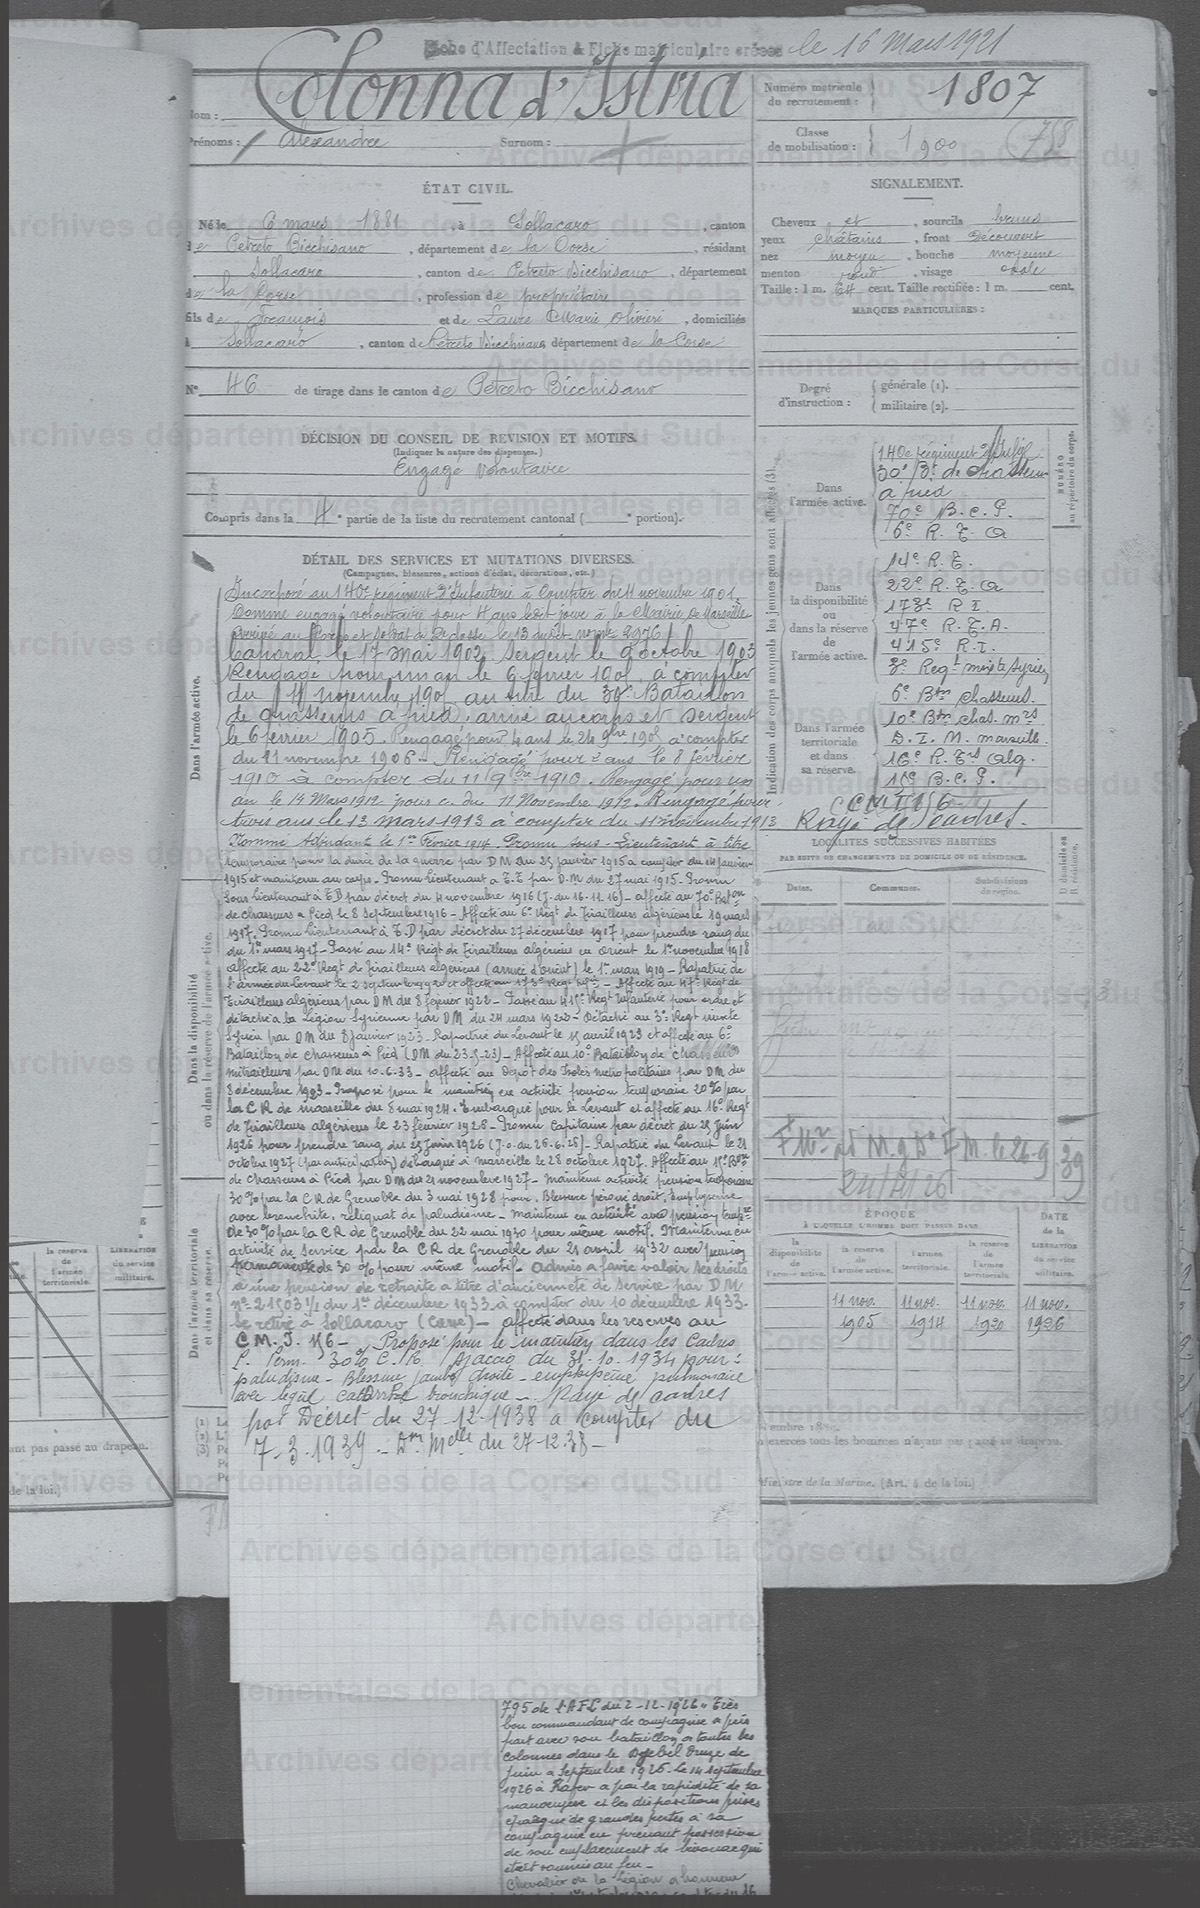 Fiche d'Affectation & Fiche matriculaire le 16 Mars 1921
Nom : Colonna d'Istria
Prénoms : Alexandre Surnom :
Numéro matricule du recrutement : 1807
Classe de mobilisation : 1900
758
ÉTAT CIVIL.
Né le 6 mars 1881, à Sollacaro, canton
de Petreto Bicchisano, département de la Corse, résidant
Sollacaro, canton de Petreto Bicchisano, département
de la Corse, profession de propriétaire
fils de François et de Laure Marie Olivieri, domiciliés
à Sollacaro, canton de Petreto Bicchisano département de la Corse
N° 46 de tirage dans le canton de Petreto Bicchisano
DÉCISION DU CONSEIL DE REVISION ET MOTIFS.
(Indiquer la nature des dispenses.)
Engagé Volontaire
Compris dans la 4e partie de la liste du recrutement cantonal ( e portion).
SIGNALEMENT.
Cheveux et , sourcils bruns
yeux châtains , front Découvert
nez moyen , bouche moyenne
menton rond , visage ovale
Taille : 1 m. 64 cent. Taille rectifiée : 1 m. cent.
MARQUES PARTICULIÈRES :
Degré d'instruction : générale (1).
militaire (2).
Indication des corps auxquels les jeunes gens sont affectés (3).
NUMÉRO au répertoire du corps.
Dans l'armée active.
140e régiment d'Infie
30e Bt. de chasseurs
a pied
70e B. C. P.
6e R. T. A
Dans la disponibilité ou dans la réserve de l'armée active.
14e R. T.
22e R. T. A
173e R I.
47e R. T. A.
415e R. I.
3e Regt mixte Syrien
Dans l'armée territoriale et dans sa réserve.
6e Btn chasseurs.
10e Btn chas. mrs
D. I. M. marseille
16e R. Trs Alg.
15e B. C. P.
C M I 156
Rayé des Cadres.
DÉTAIL DES SERVICES ET MUTATIONS DIVERSES.
(Campagnes, blessures, actions d'éclat, décorations, etc.)
Dans l'armée active.
Incorporé au 140e régiment d'Infanterie à compter du 11 novembre 1901.
Comme engagé volontaire pour 4 ans ledit jour à la Mairie de Marseille
Arrivé au Corps et soldat de 2e classe le 13 dudit nomte 2976
Caporal le 17 Mai 1902. Sergent le 9 octobre 1903
Rengagé pour un an le 6 février 1905 à compter
du 11 novembre 1905 au titre du 30e Bataillon
de chasseurs à pied, arrivé au corps et sergent
le 6 février 1905. Rengagé pour 4 ans le 24 9bre 1905 à compter
du 11 novembre 1906. Rengagé pour 2 ans le 8 février
1910 à compter du 11 9bre 1910. Rengagé pour un
an le 14 Mars 1912 pour c. du 11 Novembre 1912. Rengagé pour
trois ans le 13 mars 1913 à compter du 11 novembre 1913
Nommé Adjudant le 1er Février 1914. Promu sous-Lieutenant à titre
temporaire pour la durée de la guerre par DM du 25 janvier 1915 à compter du 14 janvier
1915 et maintenu au corps. Promu Lieutenant à T.T par D.M du 27 mai 1915. Promu
Sous Lieutenant à T.D par décret du 4 novembre 1916 (J. du 16.11.16) – affecté au 70e Baton
de chasseurs à Pied le 8 septembre 1916 – Affecté au 6e Régt de Tirailleurs algériens le 19 mars
1917. Promu Lieutenant à T.D par décret du 27 décembre 1917 pour prendre rang du
du 1er mars 1917 – Passé au 14e Régt de Tirailleurs algériens en Orient le 1er novembre 1918
affecté au 22e Régt de Tirailleurs algériens (armée d'Orient) le 1er mars 1919 – Rapatrié de
l'armée du Levant le 2 septembre 1920 et affecté au 173e Régt Infie – Affecté au 47e Régt de
Tirailleurs algériens par DM du 8 février 1922 – Passé au 415e Régt Infanterie pour ordre et
détaché à la Légion Syrienne par DM du 24 mars 1922 – Détaché au 3e Régt mixte
Syrien par DM du 8 janvier 1923. Rapatrié du Levant le 15 avril 1923 et affecté au 6e
Bataillon de chasseurs à Pied (DM du 23.5.23) – Affecté au 10e Bataillon de chasseurs
mitrailleurs par DM du 10.6.33 – affecté au Dépôt des Isolés métropolitains par DM du
8 décembre 1923 – Proposé pour le maintien en activité pension temporaire 20% par
la CR de marseille du 8 mai 1924. Embarqué pour le Levant et affecté au 16e Régt
de Tirailleurs algériens le 23 février 1926 – Promu Capitaine par décret du 25 Juin
1926 pour prendre rang du 25 Juin 1926 (J.o. du 26.6.26) – Rapatrié du Levant le 21
octobre 1927 (par anticipation) débarqué à marseille le 28 octobre 1927. Affecté au 15e Bton
de chasseurs à Pied par DM du 21 novembre 1927 – Maintenu activité pension temporaire
30% par la CR de Grenoble du 3 mai 1928 pour : Blessure péroné droit, Emphysème
avec bronchite, reliquat de paludisme – maintenu en activité avec pension tempre
de 30% par la CR de Grenoble du 22 mai 1930 pour même motif. Maintenu en
activité de service par la CR de Grenoble du 21 avril 1932 avec pension
permanente de 30% pour même motif – Admis à faire valoir ses droits
à une pension de retraite à titre d'ancienneté de service par DM
n° 21503 1/1 du 1er décembre 1933 à compter du 10 décembre 1933.
Se retire à Sollacaro (Corse) – affecté dans les réserves au
C M. I. 156 – Proposé pour le maintien dans les Cadres
P. Perm. 30% C. R. Ajaccio du 31.10.1934 pour :
paludisme – Blessure jambe droite – emphysème pulmonaire
avec léger catarrhe bronchique – Rayé des cadres
par Décret du 27-12-1938 à compter du
7-3-1939 – Dn Melle du 27-12-38 –
Dans la disponibilité ou dans la réserve de l'armée active.
Dans l'armée territoriale et dans sa réserve.
LOCALITÉS SUCCESSIVES HABITÉES
PAR SUITE DE CHANGEMENTS DE DOMICILE OU DE RÉSIDENCE.
Dates. Communes. Subdivisions de région. D. domicile ou R. résidence.
24/4/26
ÉPOQUE
À LAQUELLE L'HOMME DOIT PASSER DANS
DATE de la LIBÉRATION du service militaire.
la disponibilité de l'armée active. la réserve de l'armée active. l'armée territoriale. la réserve de l'armée territoriale.
11 nov. 11 nov. 11 nov. 11 nov.
1905 1914 1920 1926
exercés tous les hommes n'ayant pas passé au drapeau.
Ministre de la Marine. (Art. 4 de la loi.)
la réserve de l'armée territoriale. LIBÉRATION du service militaire.
ant pas passé au drapeau.
de la loi.)
795 de l'AFL du 2-12-1926 "Très
bon commandant de compagnie a pris
part avec son bataillon à toutes les
colonnes dans le Djebel Druze de
Juin à Septembre 1926. Le 14 septembre
1926 à Rafer a par la rapidité de sa
manoeuvre et les dispositions prises
épargné de grandes pertes à sa
compagnie en prenant possession
de son emplacement de bivouac qui
était soumis au feu –
Chevalier de la Légion d'honneur
Archives départementales de la Corse du Sud